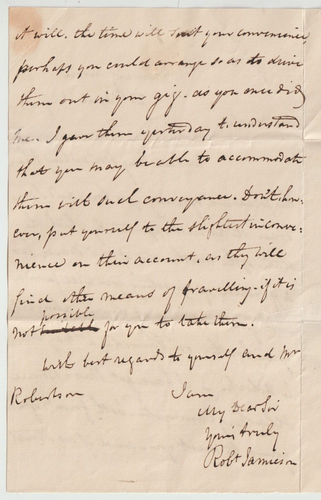 it will. the time will suit your convenience,
perhaps you could arrange so as to drive
them out in your gig. as you once did
me. I gave them yesterday to understand
that you may be able to accommodate
them with such conveyance. Don't. how-
ever, put yourself to the slightest inconve-
nience on their account, as they will
find other means of travelling. if it is
possible
not for you to take them.
With best regards to yourself and Mr
Robertson
I am
My Dear Sir
Yours truly
Robt Jamieson